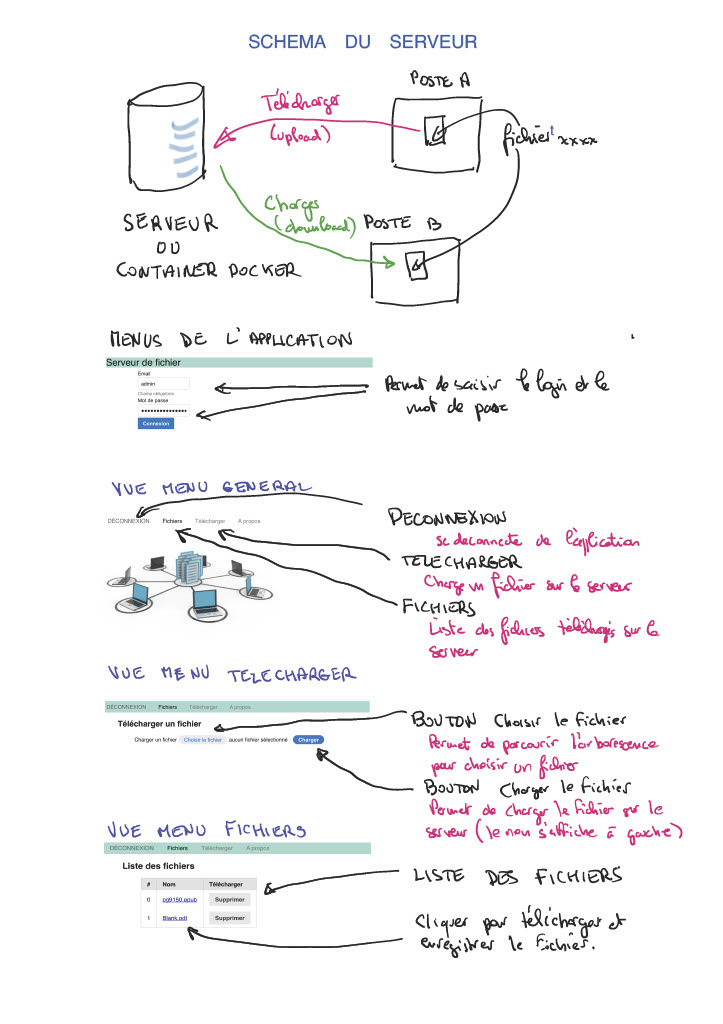 SCHEMA DU SERVEUR
POSTE A
Télécharger
(upload)
fichier xxxx
Charger
(download)
POSTE B
SERVEUR
OU
CONTAINER DOCKER
MENUS DE L'APPLICATION
Serveur de fichier
Email
admin
Champ obligatoire
Mot de passe
Connexion
Permet de saisir le login et le
mot de passe
VUE MENU GENERAL
DÉCONNEXION Fichiers Télécharger A propos
DECONNEXION
se deconnecte de l'application
TELECHARGER
Charge un fichier sur le serveur
FICHIERS
Liste des fichiers téléchargés sur le
serveur
VUE MENU TELECHARGER
DÉCONNEXION Fichiers Télécharger A propos
Télécharger un fichier
Charger un fichier Choisir le fichier aucun fichier sélectionné Charger
BOUTON Choisir le fichier
Permet de parcourir l'arborescence
pour choisir un fichier
BOUTON Charger le fichier
Permet de charger le fichier sur le
serveur (le nom s'affiche à gauche)
VUE MENU FICHIERS
DÉCONNEXION Fichiers Télécharger A propos
Liste des fichiers
# Nom Télécharger
0 pg9150.epub Supprimer
1 Blank.odt Supprimer
LISTE DES FICHIERS
Cliquer pour télécharger et
enregistrer le fichier.